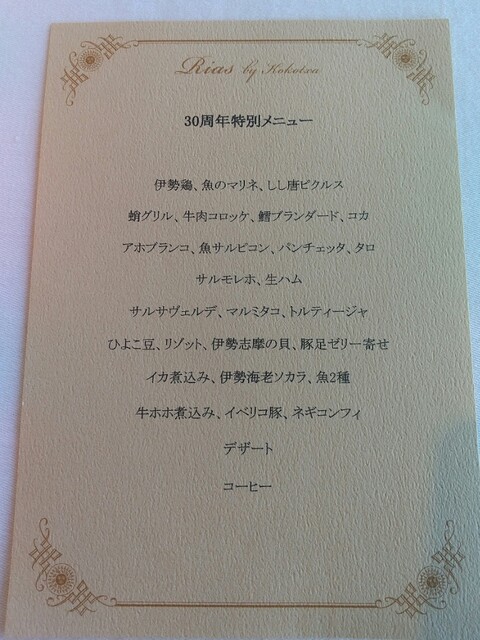 Rias by Kokotxa
30周年特別メニュー
伊勢鶏、魚のマリネ、しし唐ピクルス
蛸グリル、牛肉コロッケ、鱈ブランダード、コカ
アホブランコ、魚サルピコン、パンチェッタ、タロ
サルモレホ、生ハム
サルサヴェルデ、マルミタコ、トルティージャ
ひよこ豆、リゾット、伊勢志摩の貝、豚足ゼリー寄せ
イカ煮込み、伊勢海老ソカラ、魚2種
牛ホホ煮込み、イベリコ豚、ネギコンフィ
デザート
コーヒー